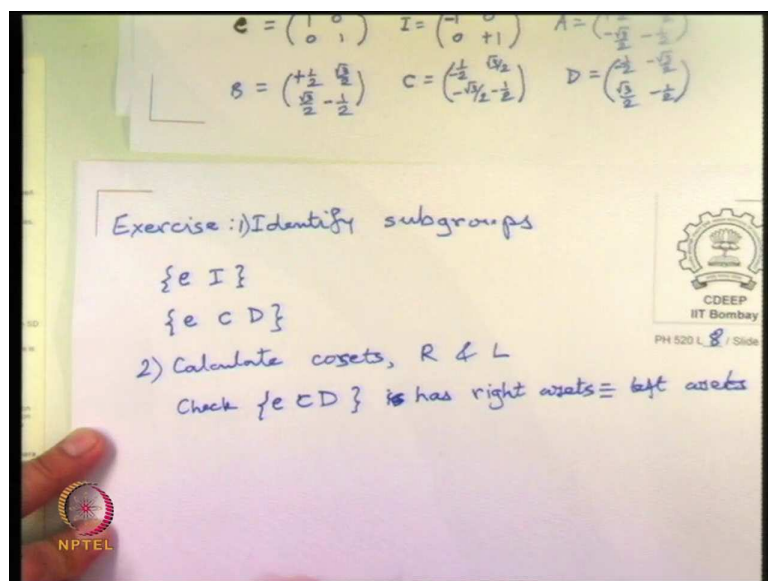 e = (1 0 I = (-1 0 A = (
0 1) 0 +1) -√3/2 -1/2)
B = (+1/2 √3/2 C = (-1/2 √3/2 D = (-1/2 -√3/2
√3/2 -1/2) -√3/2 -1/2) √3/2 -1/2)
Exercise : 1) Identify subgroups
{e I}
{e C D}
2) Calculate cosets, R & L
Check {e C D} has right cosets ≡ left cosets
CDEEP
IIT Bombay
PH 520 L 8 / Slide
NPTEL